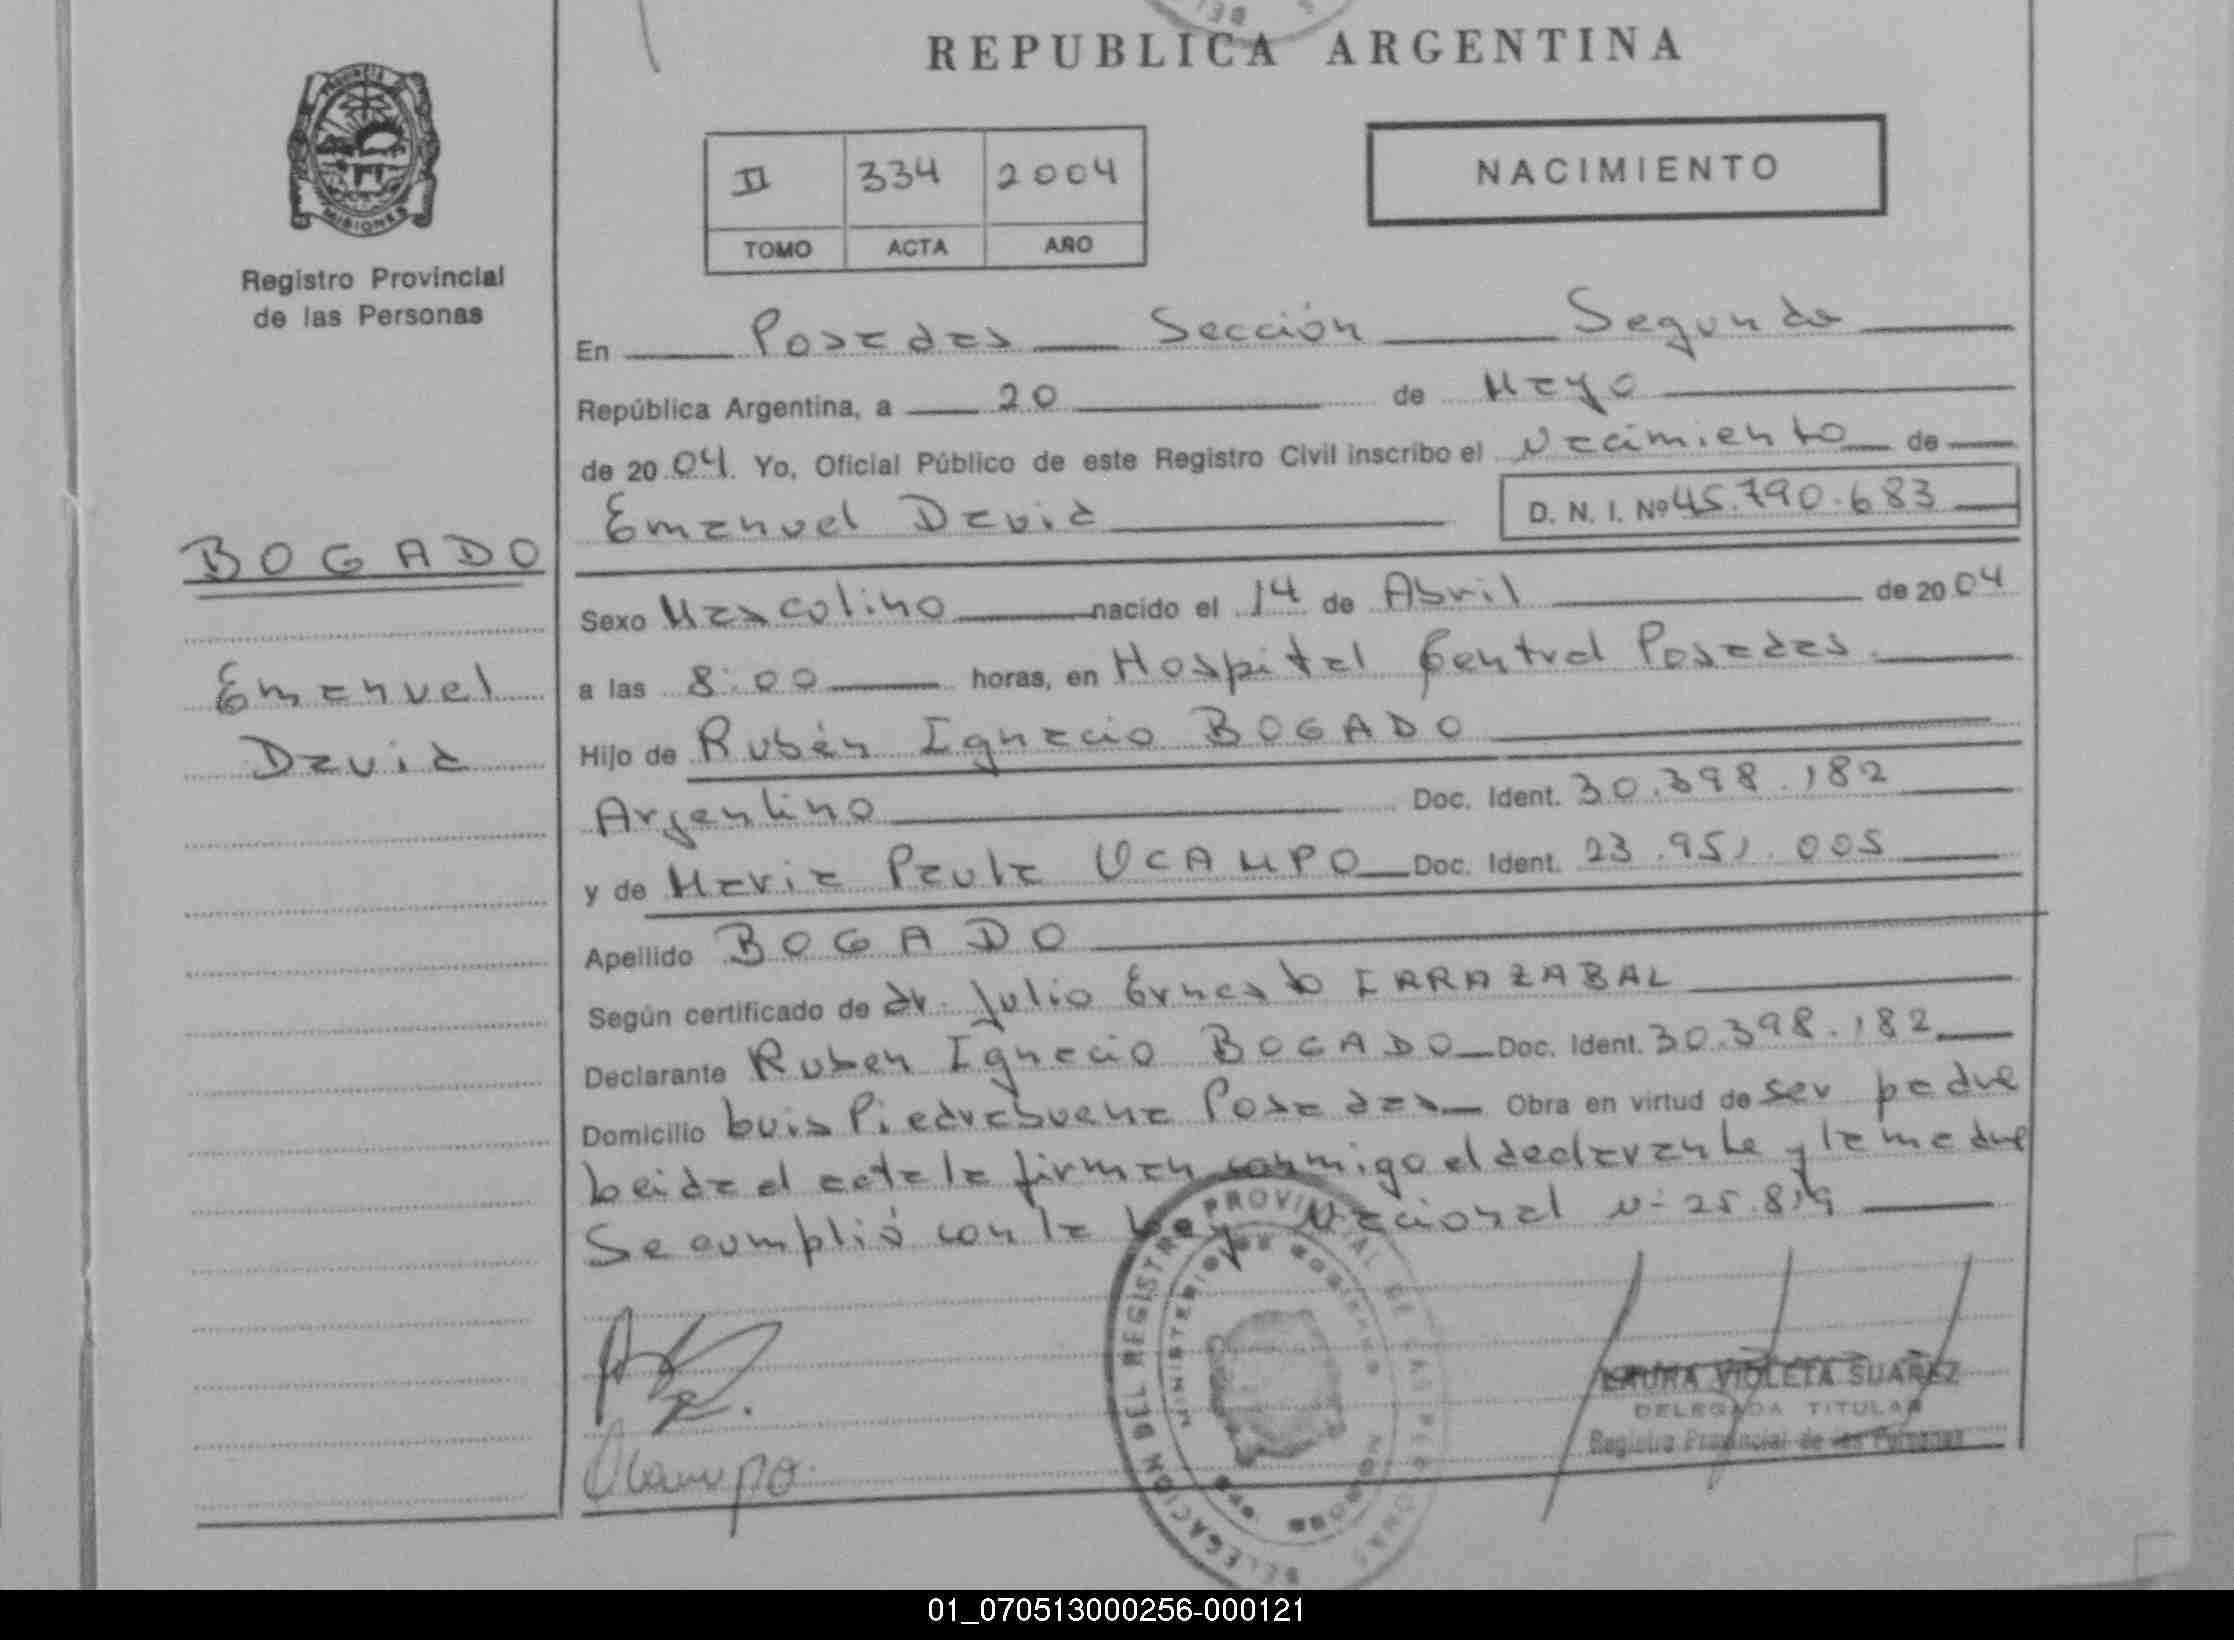 REPUBLICA ARGENTINA
MISIONES
Registro Provincial
de las Personas
II 334 2004
TOMO ACTA AÑO
NACIMIENTO
En Posadas Sección Segunda
República Argentina, a 20 de Mayo
de 2004. Yo, Oficial Público de este Registro Civil inscribo el Nacimiento de
Emanuel David D. N. I. Nº 45.790.683
BOGADO
Emanuel
David
Sexo Masculino nacido el 14 de Abril de 2004
a las 8:00 horas, en Hospital Central Posadas
Hijo de Rubén Ignacio BOGADO
Argentino Doc. Ident. 30.398.182
y de Maria Paula OCAMPO Doc. Ident. 23.951.005
Apellido BOGADO
Según certificado de dr. Julio Ernesto IRRAZABAL
Declarante Ruben Ignacio BOGADO Doc. Ident. 30.398.182
Domicilio Luis Piedrabuena Posadas Obra en virtud de ser padre
Leida el acta la firman conmigo el declarante y la madre
Se cumplió con la Ley Nacional Nº 25.819
Ocampo
DELEGACION DEL REGISTRO PROVINCIAL DE LAS PERSONAS
MINISTERIO DE GOBIERNO
LAURA VIOLETA SUAREZ
DELEGADA TITULAR
Registro Provincial de las Personas
01_070513000256-000121